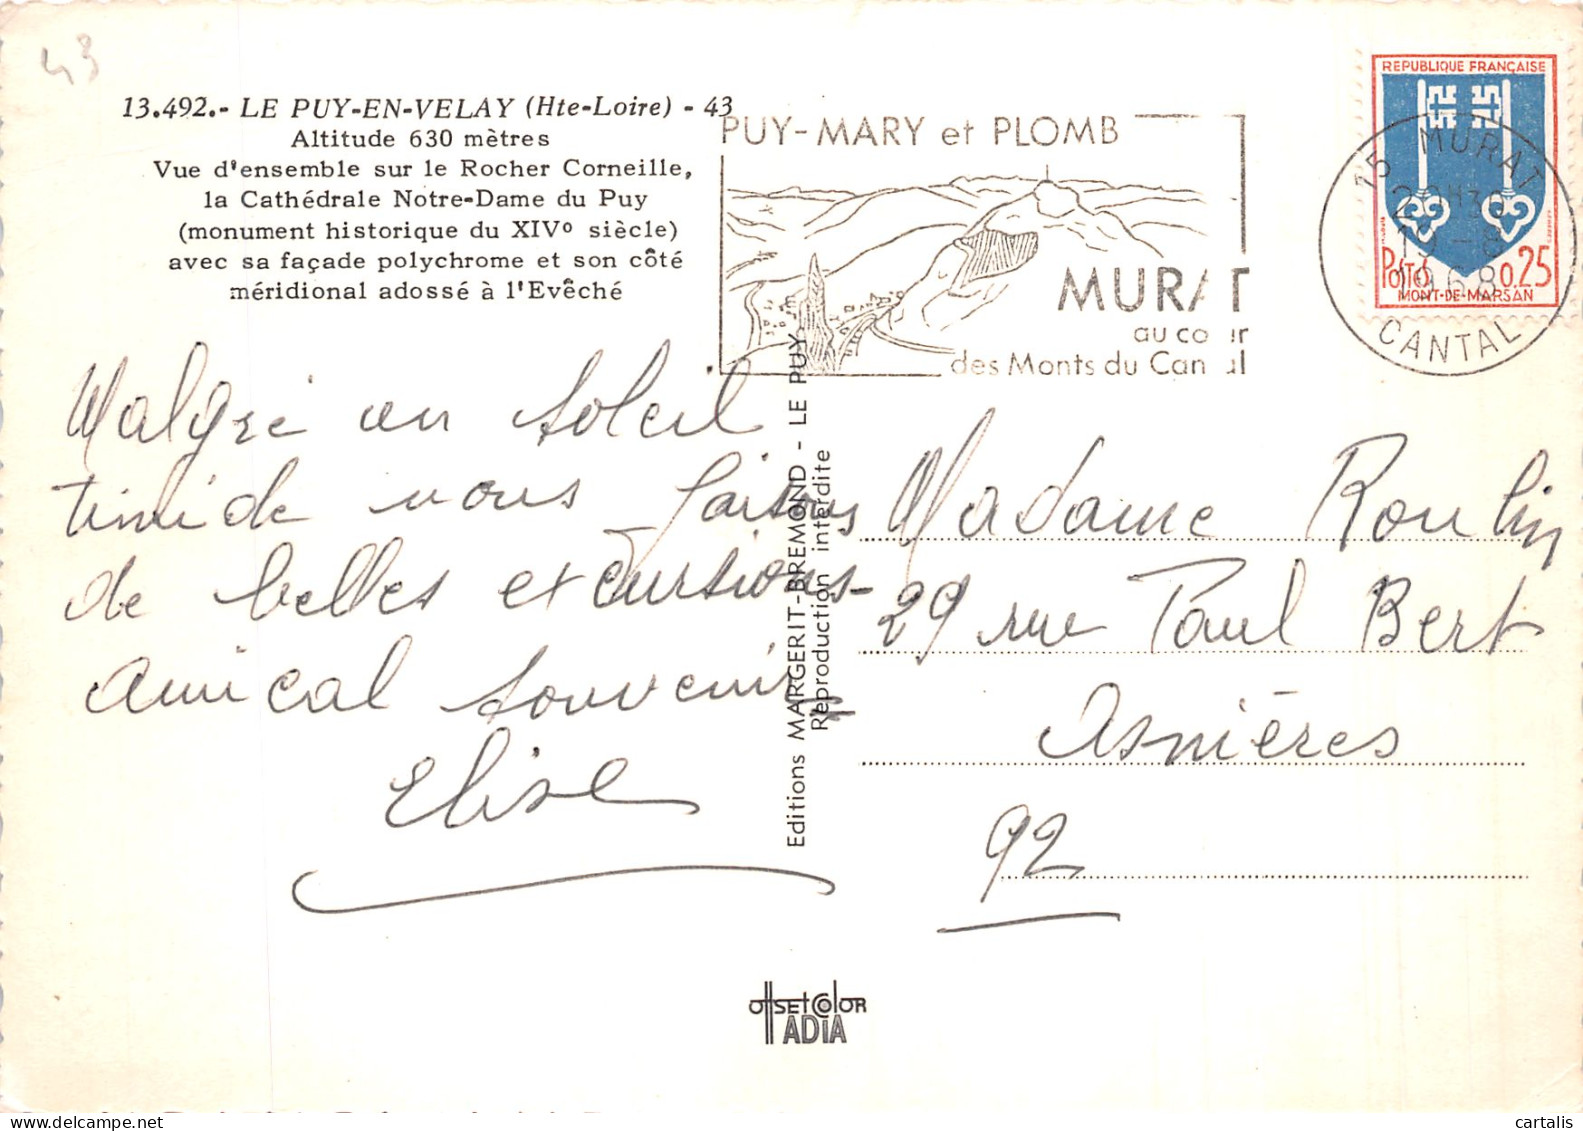 43
13.492.- LE PUY-EN-VELAY (Hte-Loire) - 43
Altitude 630 mètres
Vue d'ensemble sur le Rocher Corneille,
la Cathédrale Notre-Dame du Puy
(monument historique du XIVº siècle)
avec sa façade polychrome et son côté
méridional adossé à l'Evêché
PUY-MARY et PLOMB
MURAT
au cœur
des Monts du Cantal
REPUBLIQUE FRANÇAISE
POSTES 0,25
MONT-DE-MARSAN
15 MURAT
19-8
1968
CANTAL
Malgré un soleil
timide nous faisons
de belles excursions-
Amical souvenir
Elise
Editions MARGERIT-BREMOND - LE PUY
Reproduction interdite
Madame Roulin
29 rue Paul Bert
Asnières
92
OffSEtCOlOR
IADIA
cartalis